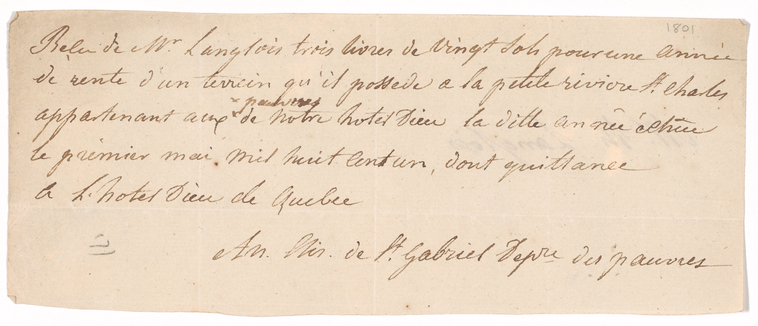 1801.
Recu de Mr Langlois trois livres de vingt sols pour une année
de rente d'un terrein qu'il possede a la petite riviere St. Charles
pauvres
appartenant aux de notre hotel Dieu la ditte année échue
le premier mai mil huit cent un, dont quittance
a L'hotel Dieu de Quebec
An. Elis. de St. Gabriel Depre des pauvres